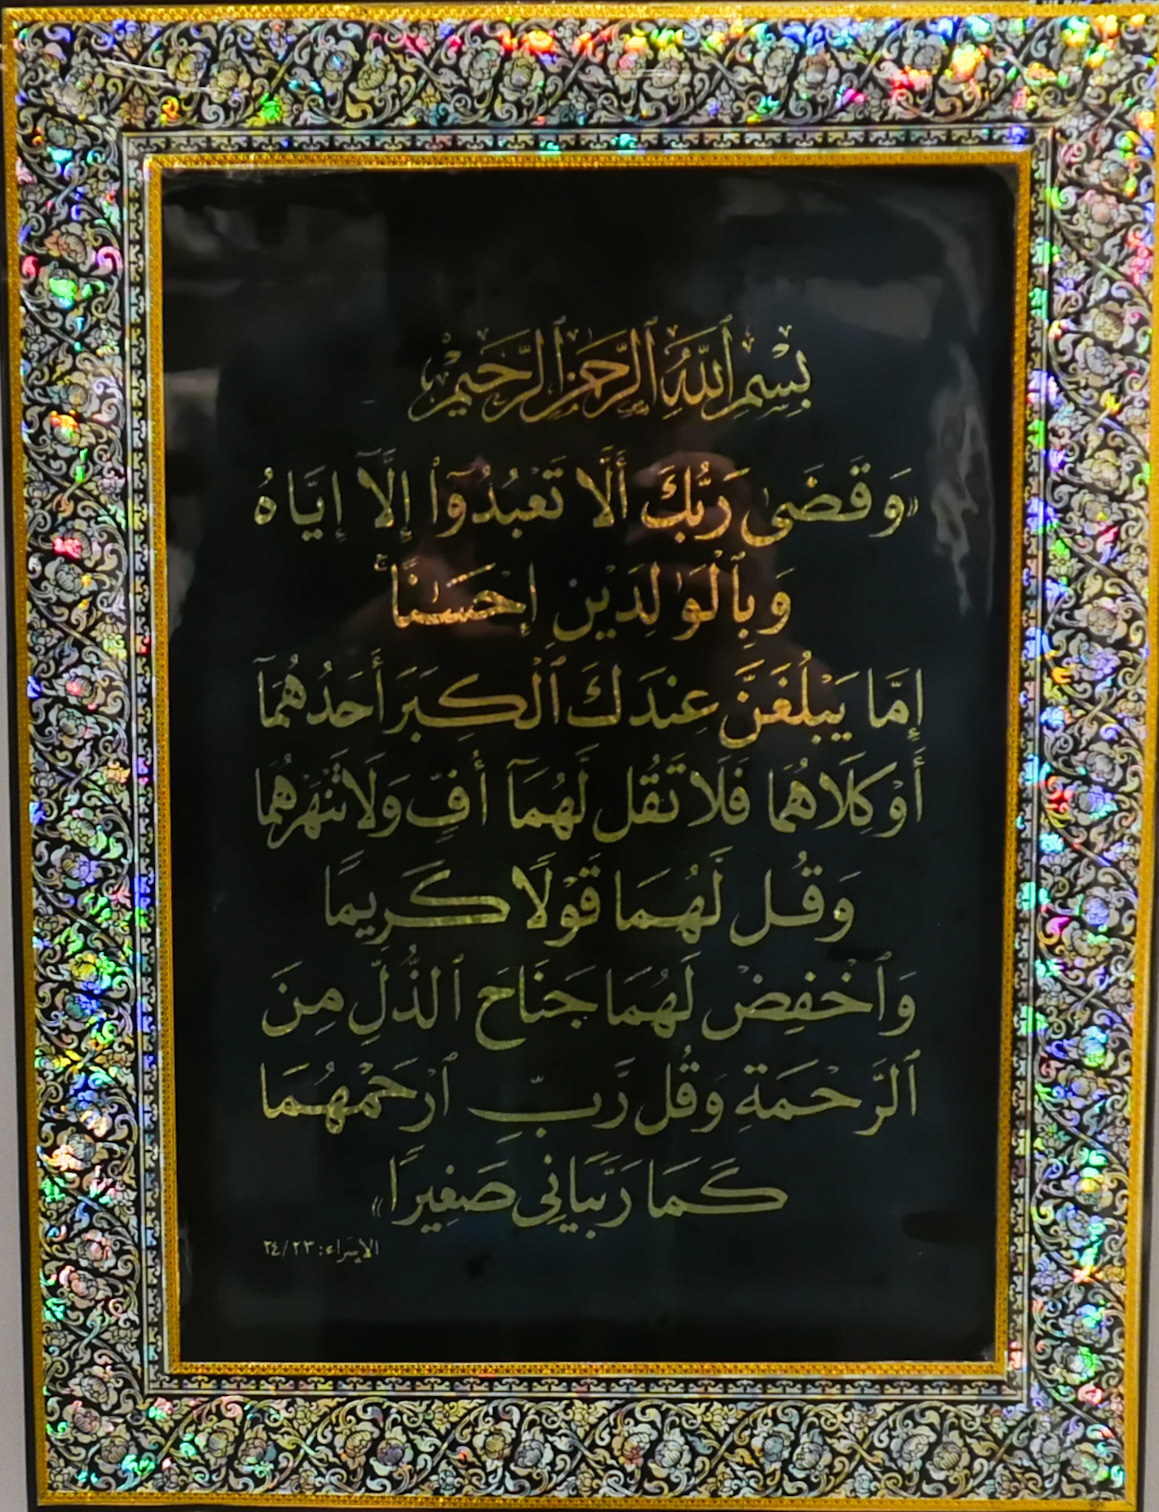 بِسْمِ ٱللَّهِ ٱلرَّحْمَٰنِ ٱلرَّحِيمِ
«وَقَضَىٰ رَبُّكَ أَلَّا تَعْبُدُوٓا۟ إِلَّآ إِيَّاهُ
وَبِٱلْوَٰلِدَيْنِ إِحْسَٰنًا ۚ
إِمَّا يَبْلُغَنَّ عِندَكَ ٱلْكِبَرَ أَحَدُهُمَآ
أَوْ كِلَاهُمَا فَلَا تَقُل لَّهُمَآ أُفٍّ وَلَا تَنْهَرْهُمَا
وَقُل لَّهُمَا قَوْلًا كَرِيمًا
وَٱخْفِضْ لَهُمَا جَنَاحَ ٱلذُّلِّ مِنَ
ٱلرَّحْمَةِ وَقُل رَّبِّ ٱرْحَمْهُمَا
كَمَا رَبَّيَانِى صَغِيرًا»
الإسراء: ٢٤/٢٣